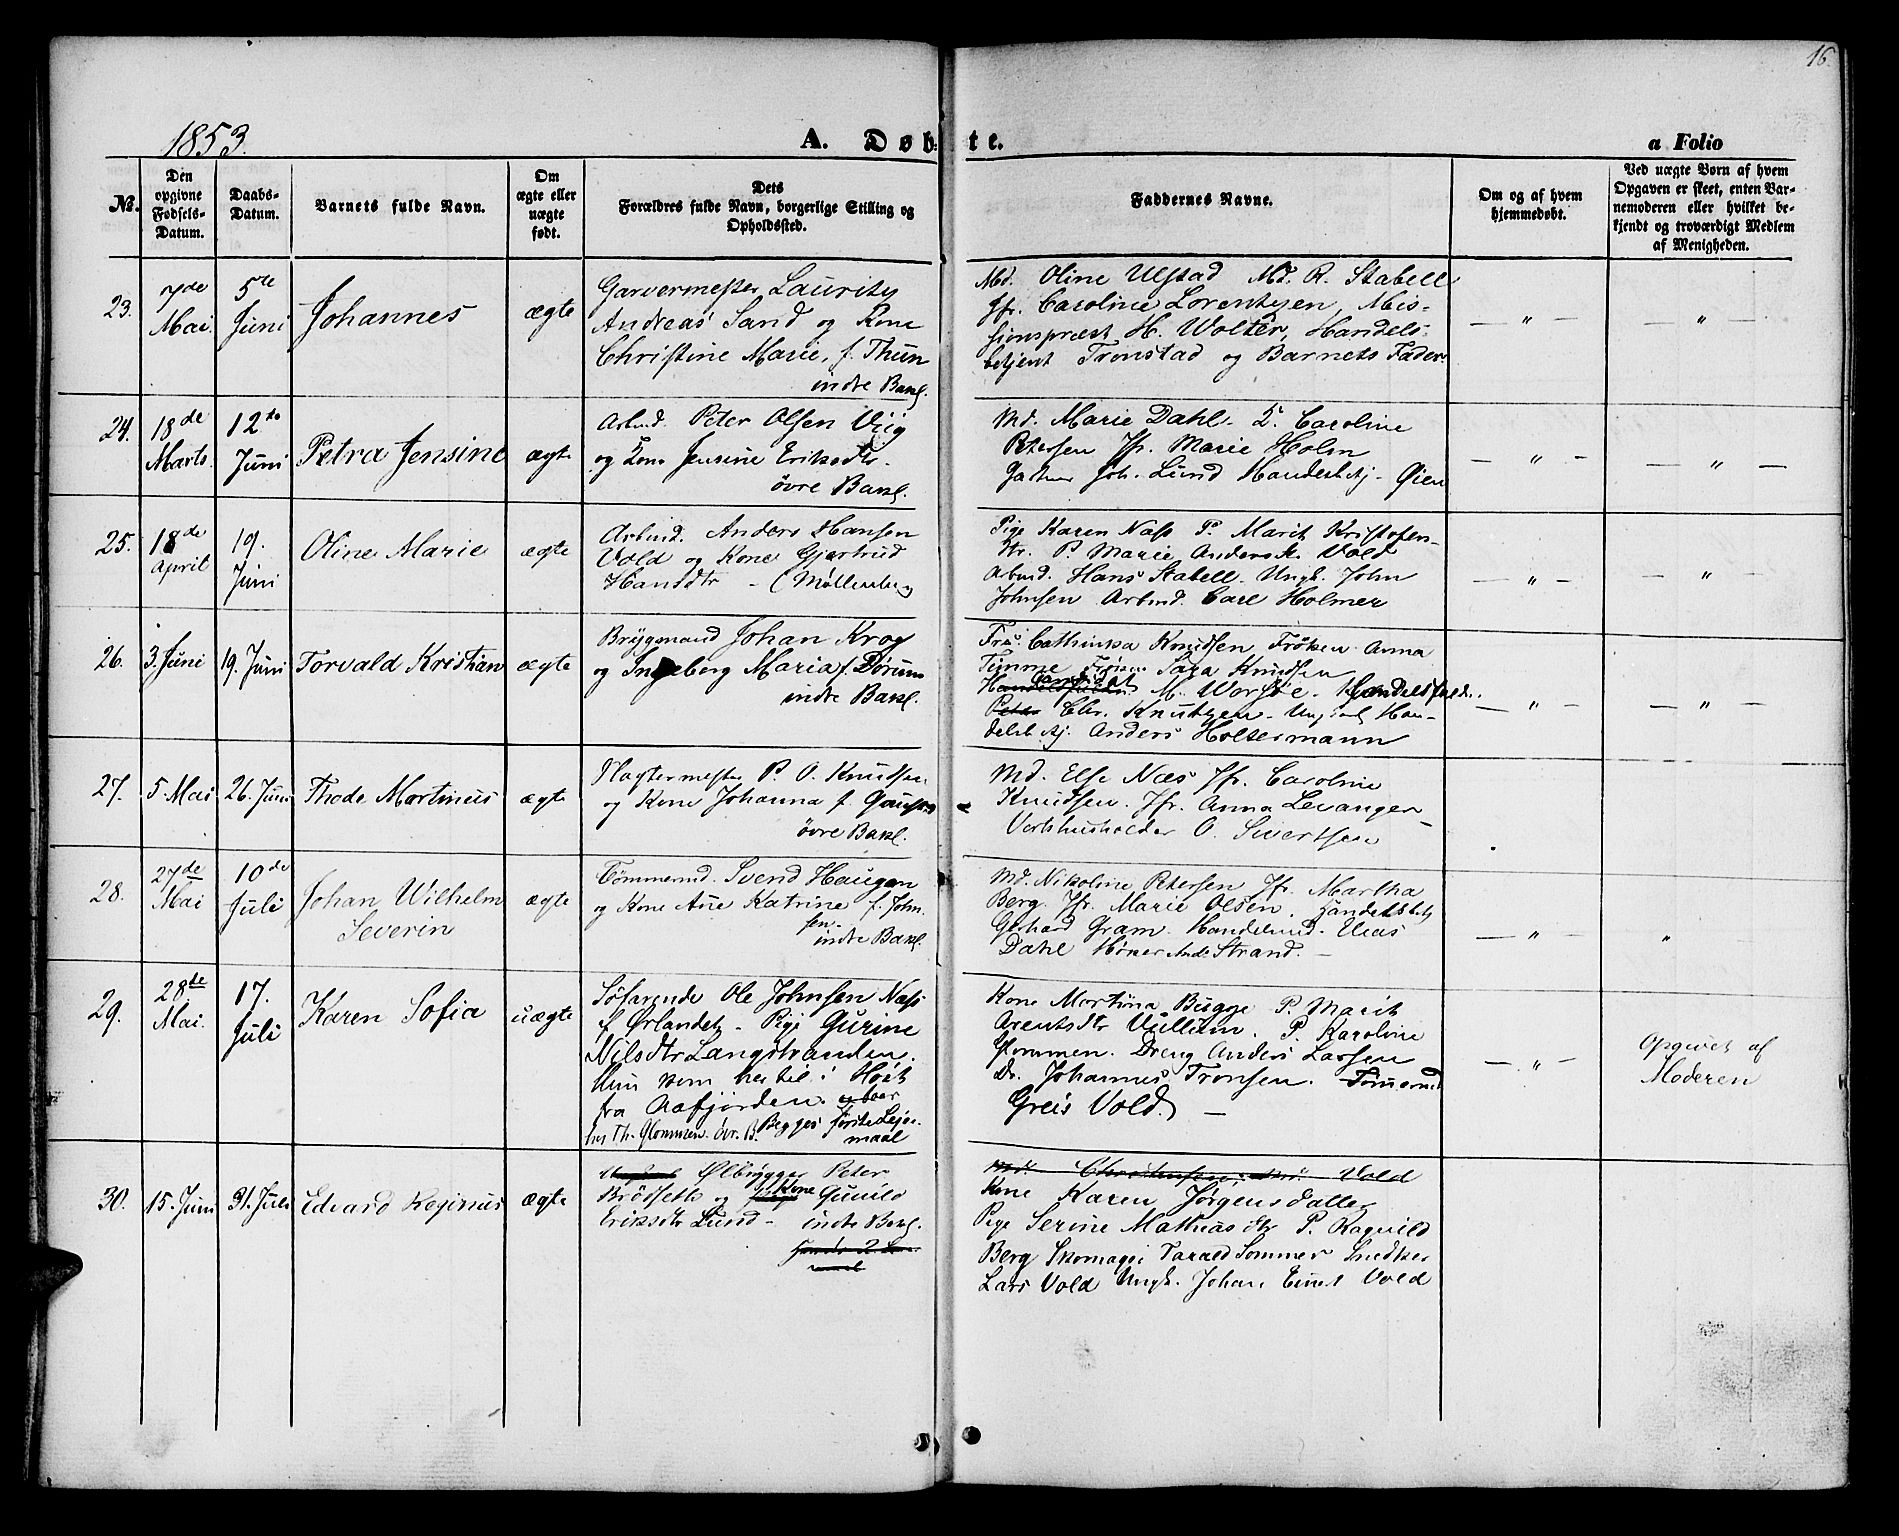 16.
1853.
A. Døbte.
a Folio
No.
Den opgivne Fødsels-Datum.
Daabs-Datum.
Barnets fulde Navn.
Om ægte eller uægte født.
Dets Forældres fulde Navn, borgerlige Stilling og Opholdssted.
Faddernes Navne.
Om og af hvem hjemmedøbt.
Ved uægte Børn af hvem Opgaven er skeet, enten Barnemoderen eller hvilket bekjendt og troværdigt Medlem af Menigheden.
23.
7de Mai.
5te Juni
Johannes
ægte
Garvermester Lauritz
Andreas Sand og Kone
Christine Marie, f. Thun
indre Bakl.
Md. Oline Ulstad Md. R. Stabell
Jfr. Caroline Lorentzen, Mis-
sionspræst H. Wolter, Handels-
betjent Tronstad og Barnets Fader
— " —
— " —
24.
18de Marts.
12te Juni
Petra Jensine
ægte
Arbmd. Peter Olsen Viig
og Kone Jensine Eriksdtr.
øvre Bakl.
Md. Marie Dahl. Caroline
Petersen Jfr. Marie Holm
Joh. Lund Handelsbetj. Øien
— " —
— " —
25.
18de April
19. Juni
Oline Marie
ægte
Arbmd. Anders Hansen
Vold og Kone Gjertrud
Hansdtr — (Møllenbg)
Pige Karen Næss P. Marit Kristofers-
dtr. P. Marie Andersdt. Vold
Arbmd. Hans Stabell. Ungk. John
Johnsen Arbmd. Carl Holmer
— " —
— " —
26.
3. Juni
19. Juni
Torvald Kristian
ægte
Brygmand Johan Krog
og Ingeborg Maria f. Dørum
indre Bakl.
Fru Cathinka Knudsen Frøken Anna
Timme Frøken Sara Knudsen
Kandidat M. Worsøe. Handelsfuldm.
Chr. Knutzen. Ungkarl Han-
delsbetj. Anders Holtermann
— " —
— " —
27.
5. Mai
26. Juni
Thode Martinus
ægte
Slagtermester P. O. Knudsen
og Kone Johanna f.
øvre Bakl.
Md. Else Næs Jfr. Caroline
Knudsen. Jfr. Anna Levanger
Vertshusholder O. Sivertsen
28.
27de Mai
10de Juli
Johan Wilhelm
Severin
ægte
Tømmermd. Svend Haugen
og Kone Ane Katrine f. John-
sen.
indre Bakl.
Md. Nikoline Petersen Jfr. Martha
Berg. Jfr. Marie Olsen. Handelsbetj
Gerhard Gram. Handelsmd. Elias
Dahl Høker And. Strand. —
— " —
"
29.
28de Mai.
17. Juli
Karen Sofia
uægte
Søfarende Ole Johnsen Næss
f. Ørlandet — Pige Gurine
Nilsdtr Langstranden.
Hun kom hertil i Høst
fra Aafjorden. og boer
hos Th. Glommen. øvr. B. Begges første Leier-
maal
Kone Martina Bugge P. Marit
Arentsdtr Vullum. P. Karoline
Glommen. Dreng Anders Larsen
Dr. Johannes Tronsen. Tømermd
Greis Vold. —
— " —
Opgivet af
Moderen
30.
15. Juni
31. Juli
Edvard Reginus
ægte
Ølbrygger Peter
Brøsseth og Kone Gunild
Eriksdtr Lund — indre Bakl.
Vold
Kone Karen Jørgensdaller
Pige Serine Mathiasdtr P. Ragnild
Berg Skomager Tarald Sommer Snedker
Lars Vold Ungk. Johan Ernst Vold